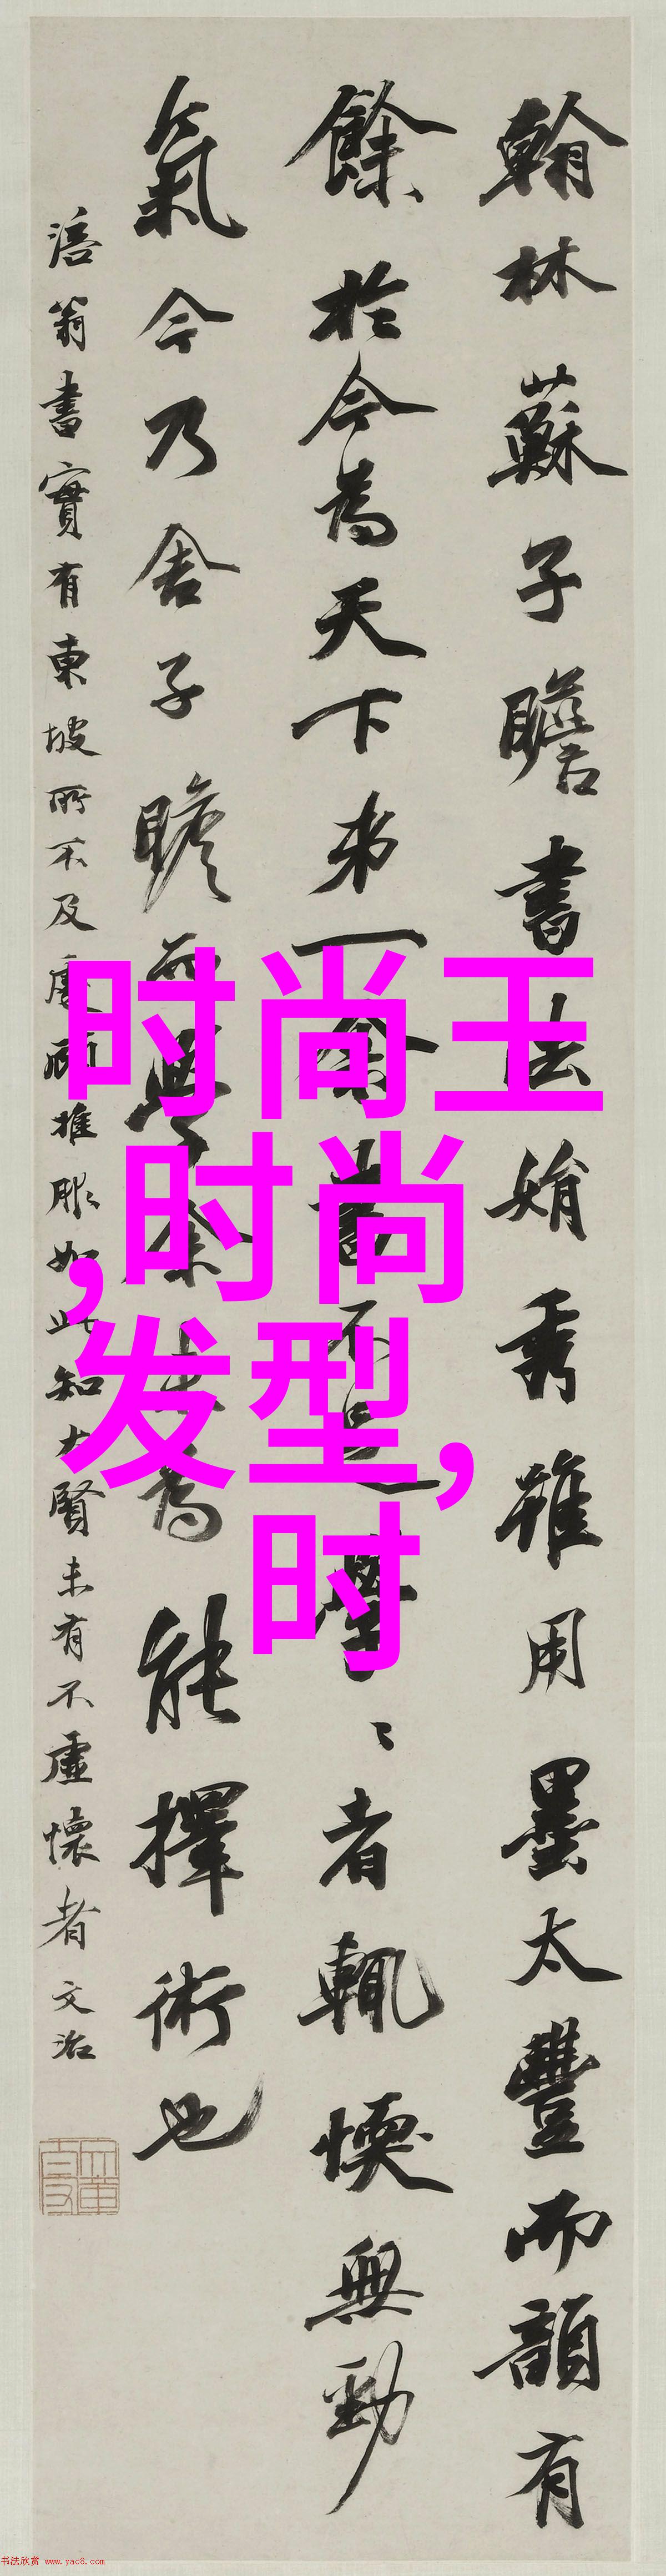 翰林蘇子瞻書法娟秀雖用墨太豐而韻有
餘於今為天下第一余書不足學學者輒愞無勁
氣今乃舍子瞻而學余未為能擇術也
涪翁書實有東坡所不及處顧推服如此知大賢未有不虛懷者文治
时尚王
,时尚
发型,
时
书法欣赏 www.yac8.com